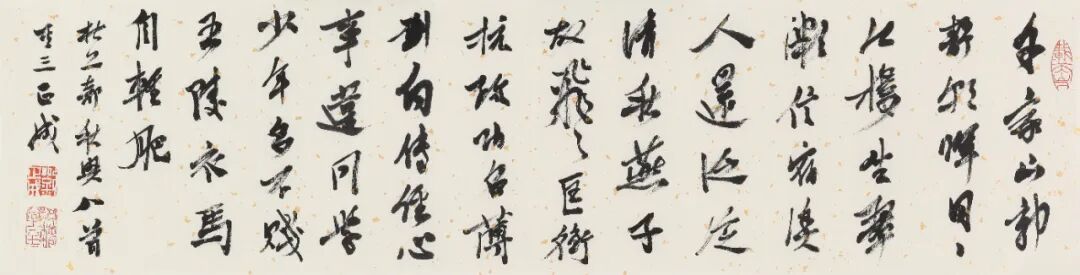 千家山郭
靜朝暉日〻
江樓坐翠
微信宿漁
人還泛泛
清秋燕子
故飛〻匡衡
抗疏功名薄
劉向傳經心
事違同學
少年多不賤
五陵衣馬
自輕肥
杜工部秋興八首
其三正成